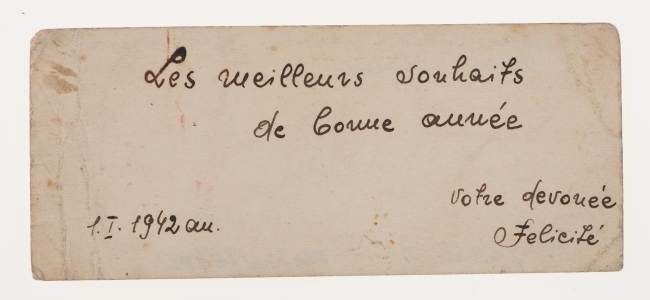 Les meilleurs souhaits
de bonne année
votre devouée
Felicité
1.I. 1942 an.